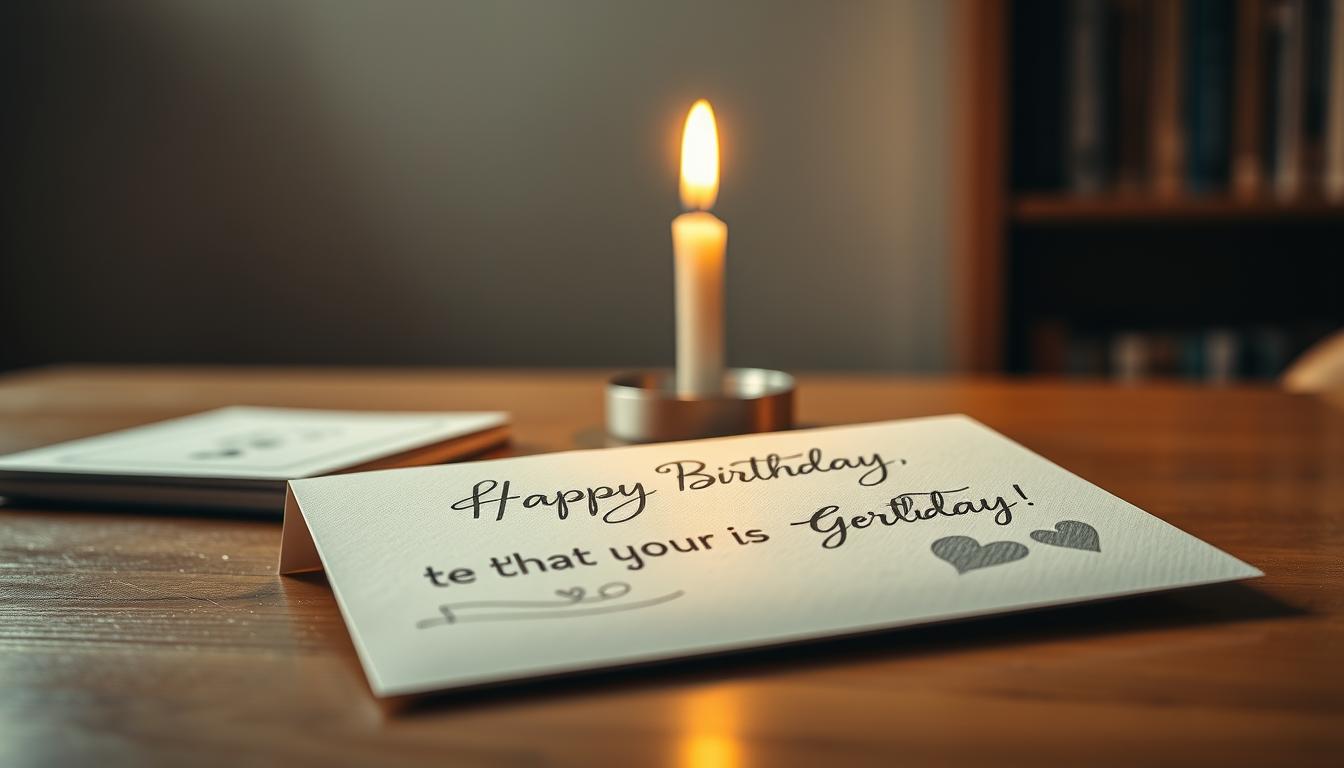 Happy Birthday,
te that your is Gertlday!